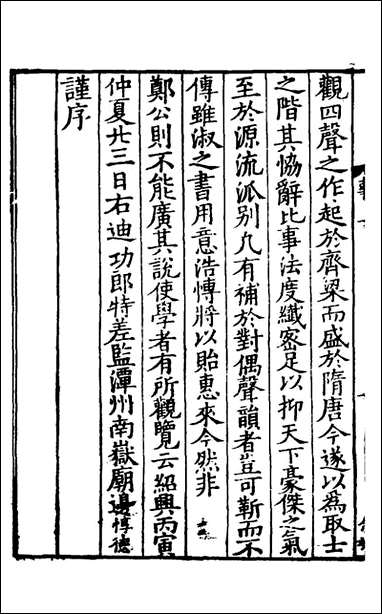 觀四聲之作起於齊梁而盛於隋唐今遂以為取士
之階其恊辭比事法度纖密足以抑天下豪傑之氣
至於源流派别凡有補於對偶聲韻者豈可靳而不
傳雖淑之書用意浩愽將以貽惠來今然非
鄭公則不能廣其說使學者有所觀覽云紹興丙寅
仲夏廿三日右迪功郎特差監潭州南嶽廟邊惇德
謹序